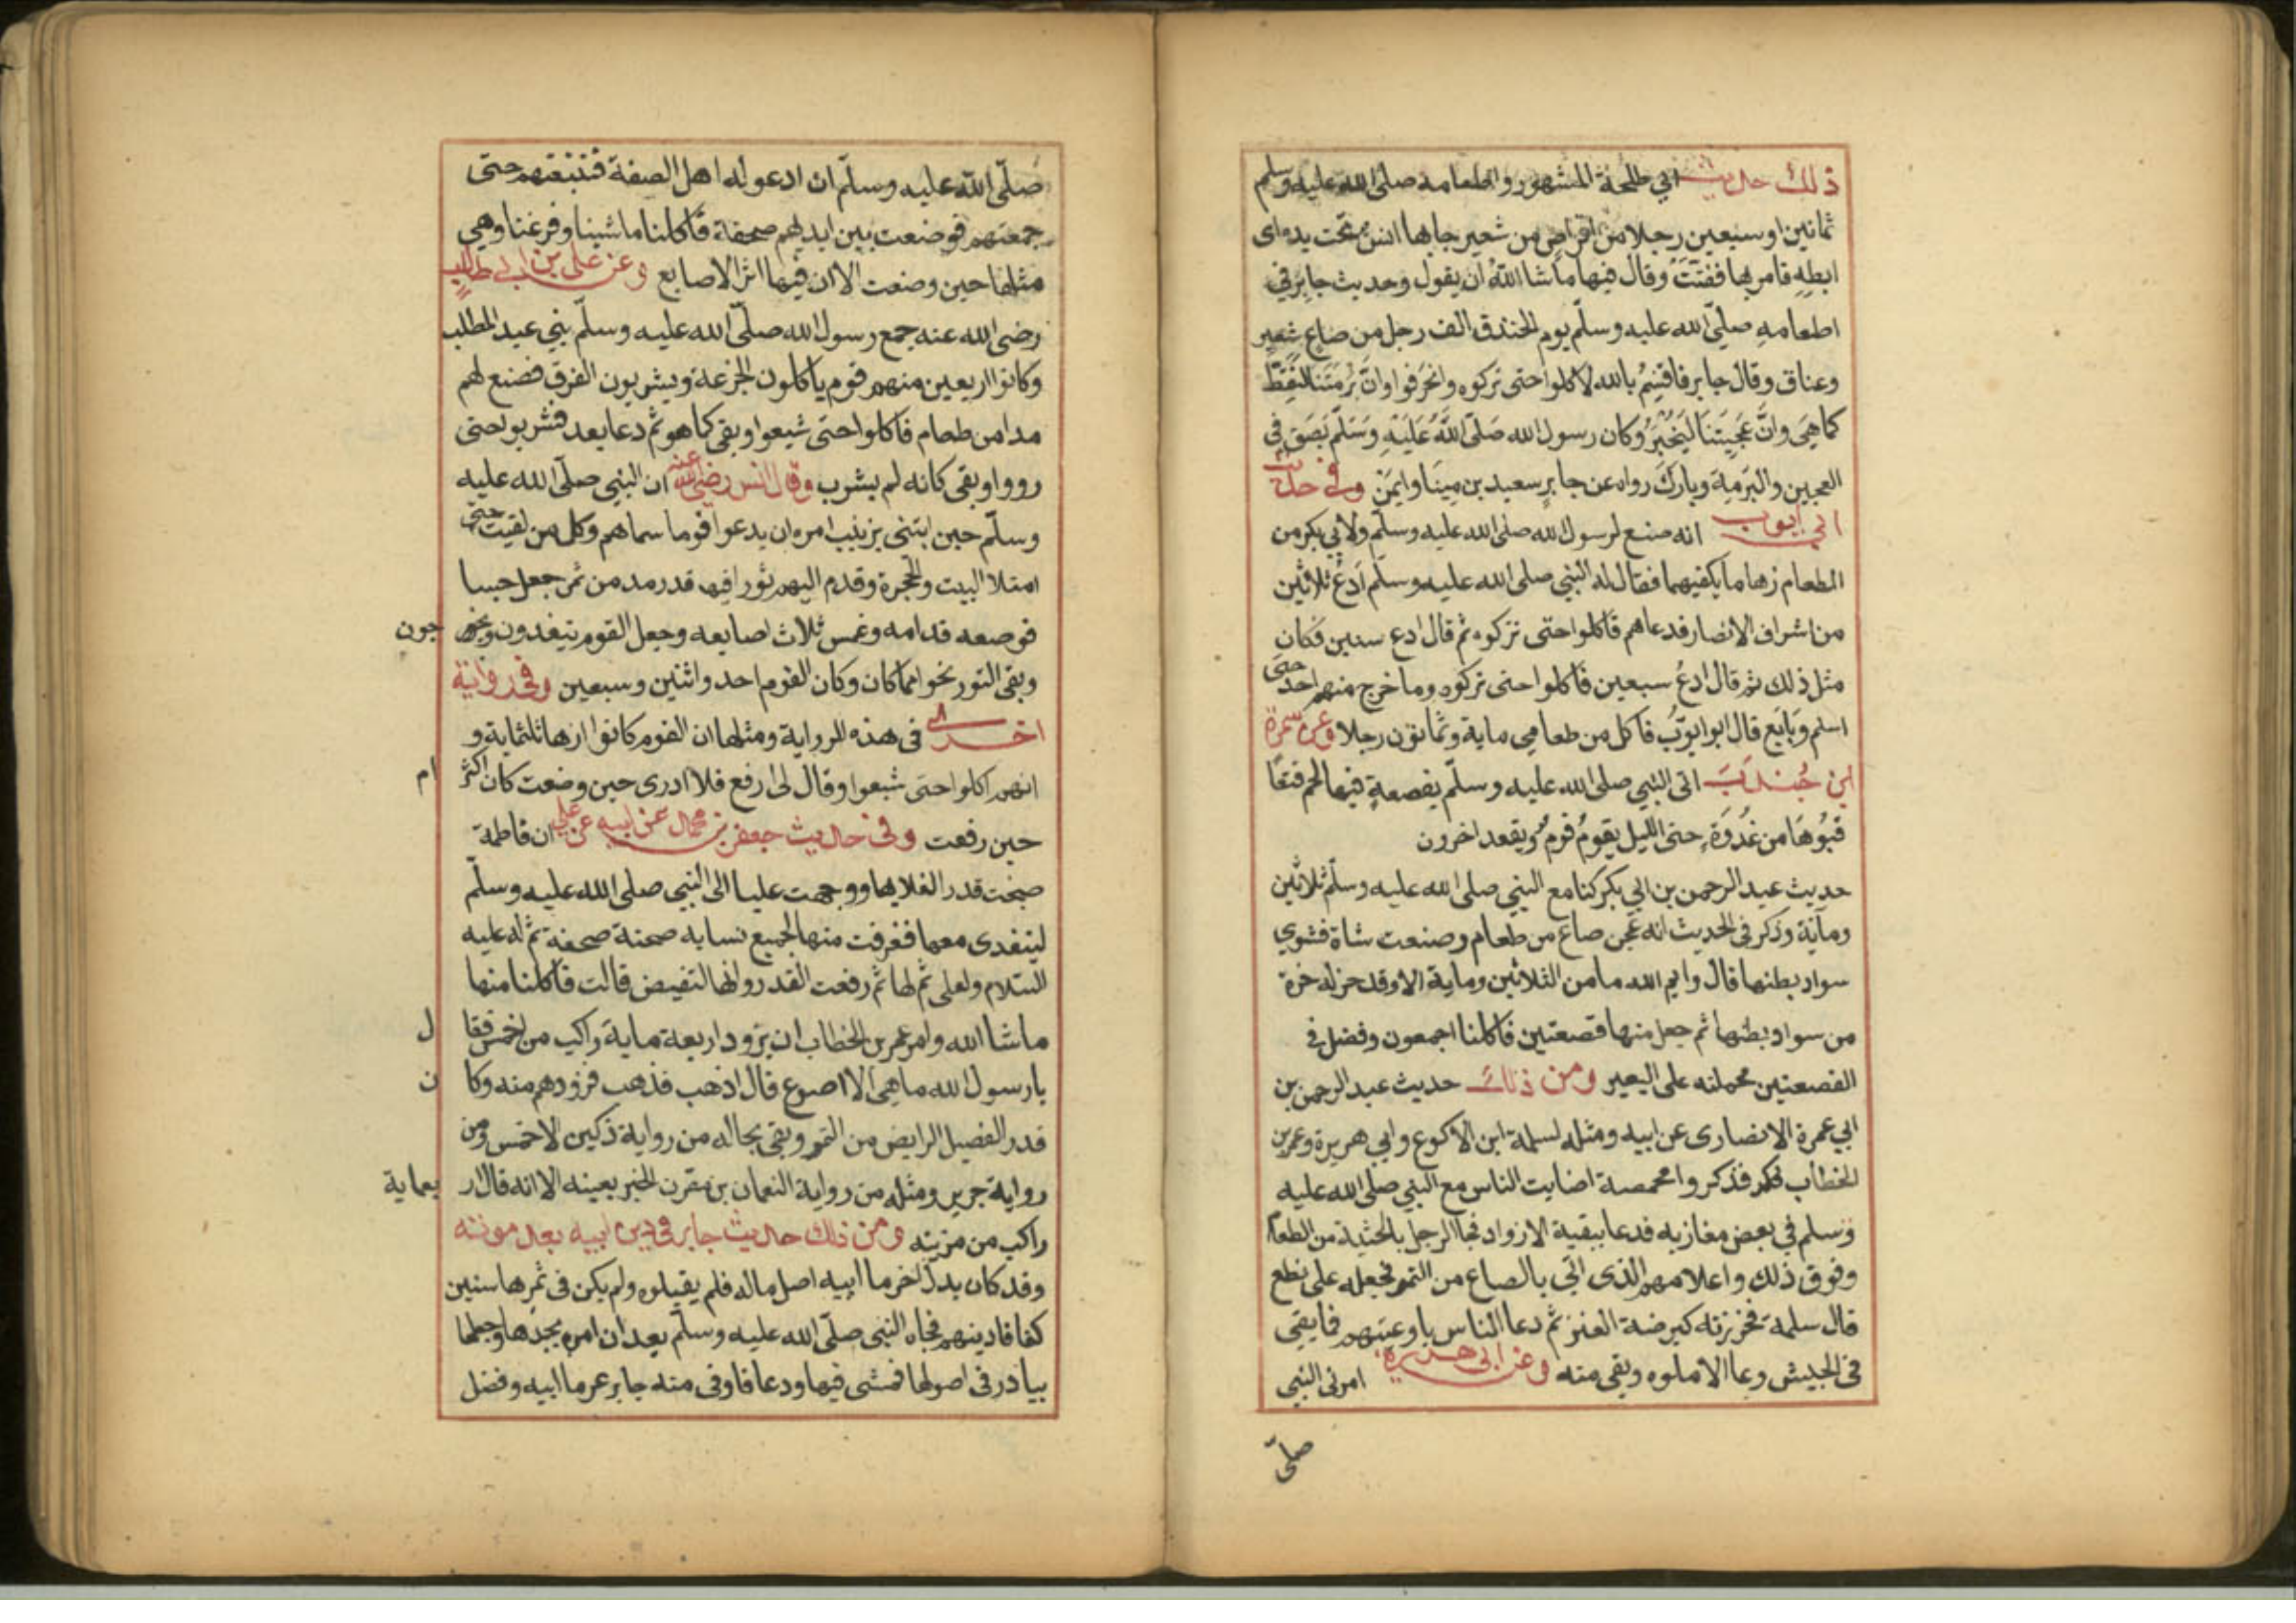 ذلك حديث ابي طلحة المشهور واطعامه صلى الله عليه وسلم
ثمانين او سبعين رجلا من اقراص من شعير جا بها انس تحت يده اى
ابطه فامر بها ففتت وقال فيها ما شا الله ان يقول وحديث جابر في
اطعامه صلى الله عليه وسلم يوم الخندق الف رجل من صاع شعير
وعناق وقال جابر فاقسم بالله لاكلوا حتى تركوه وانحرفوا وان برمتنا لتغط
كما هي وان عجيننا ليخبز وكان رسول الله صلى الله عليه وسلم بصق في
العجين والبرمة وبارك رواه عن جابر سعيد بن مينا وايمن وفي حديث
ابي ايوب انه صنع لرسول الله صلى الله عليه وسلم ولابي بكر من
الطعام زها ما يكفيهما فقال له النبي صلى الله عليه وسلم ادع ثلاثين
من اشراف الانصار فدعاهم فاكلوا حتى تركوه ثم قال ادع ستين فكان
مثل ذلك ثم قال ادع سبعين فاكلوا حتى تركوه وما خرج منهم احد حتى
اسلم وبايع قال ابو ايوب فاكل من طعامي ماية وثمانون رجلا وعن سمرة
ابن جندب اتى النبي صلى الله عليه وسلم بقصعة فيها لحم فتعا
قبوها من غدوة حتى الليل يقوم قوم ويقعد اخرون
حديث عبد الرحمن بن ابي بكر كنا مع النبي صلى الله عليه وسلم ثلاثين
وماية وذكر في الحديث انه عجن صاع من طعام وصنعت شاة فشوي
سواد بطنها قال وايم الله ما من الثلاثين وماية الا وقد حز له حزة
من سواد بطنها ثم جعل منها قصعتين فاكلنا اجمعون وفضل في
القصعتين فحملته على البعير ومن ذلك حديث عبد الرحمن بن
ابي عمرة الانصارى عن ابيه ومثله لسلمة ابن الاكوع وابي هريرة وعمر بن
الخطاب فذكروا مخمصة اصابت الناس مع النبي صلى الله عليه
وسلم في بعض مغازيه فدعا ببقية الازواد فجا الرجل بالحثية من الطعام
وفوق ذلك واعلاهم الذى اتي بالصاع من التمر فجعله على نطع
قال سلمة فحزرته كربضة العنز ثم دعا الناس باوعيتهم فما بقي
في الجيش وعا الا ملوه وبقي منه وعن ابي هريرة امرني النبي
صلى
صلى الله عليه وسلم ان ادعو له اهل الصفة فتتبعتهم حتى
جمعتهم فوضعت بين ايديهم صحفة فاكلنا ما شينا وفرغنا وهي
مثلها حين وضعت الا ان فيها اثر الاصابع وعن علي بن ابي طالب
رضى الله عنه جمع رسول الله صلى الله عليه وسلم بني عبد المطلب
وكانوا اربعين منهم قوم ياكلون الجزعة ويشربون الفرق فصنع لهم
مدا من طعام فاكلوا حتى شبعوا وبقى كما هو ثم دعا بعد فشربو احتى
رووا وبقى كانه لم يشرب وقال انس رضي الله عنه ان النبي صلى الله عليه
وسلم حين ابتنى بزينب امره ان يدعوا قوما سماهم وكل من لقيت حتى
امتلا البيت والحجرة وقدم اليهم تورا فيه قدر مد من تمر جعل حيسا
فوضعه قدامه وغمس ثلاث اصابعه وجعل القوم يتغدون ويخر جون
وبقى التور نحوا مما كان وكان القوم احد واثنين وسبعين وفي رواية
اخرى في هذه الرواية ومثلها ان القوم كانوا ازها ثلثماية و
انهم اكلوا حتى شبعوا وقال لى ارفع فلا ادرى حين وضعت كان اكثر ام
حين رفعت وفي حديث جعفر بن محمد عن ابيه عن علي ان فاطمة
طبخت قدر الغدايهما ووجهت عليا الى النبي صلى الله عليه وسلم
ليتغدى معهما فغرفت منها لجميع نسايه صحفة صحفة ثم له عليه
السلام ولعلى ثم لها ثم رفعت القدر وانها لتفيض قالت فاكلنا منها
ما شا الله وامر عمر بن الخطاب ان يزود اربعة ماية راكب من احمس فقا ل
يا رسول الله ما هي الا اصوع قال اذهب فذهب فزودهم منه وكا ن
قدر الفصيل الرابض من التمر وبقى بحاله من رواية دكين الاحمسي ومن
رواية جرير ومثله من رواية النعمان بن مقرن الخبر بعينه الا انه قال ار بعماية
راكب من مزينة ومن ذلك حديث جابر في دين ابيه بعد موته
وقد كان بدل لغرما ابيه اصل ماله فلم يقبلوه ولم يكن في ثمرها سنين
كفافا دينهم فجاه النبي صلى الله عليه وسلم بعد ان امره بجدها وجعلها
بيادر في اصولها فمشى فيها ودعا فاوفى منه جابر غرما ابيه وفضل